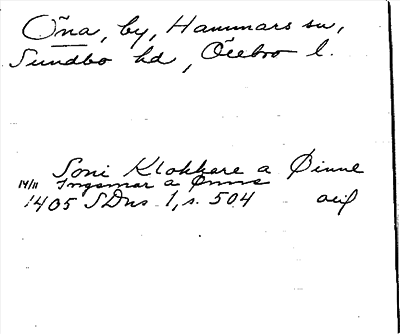 Öna, by, Hammars sn,
Sundbo hd, Örebro l.
Joni Klokkare a Øinne
14/11 Ingemar a Ønne
1405 SDns 1, s. 504